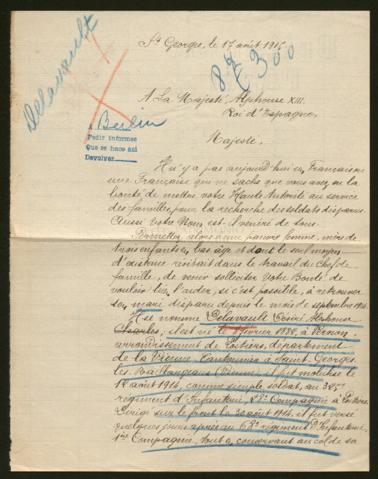 St Georges, le 17 août 1915
Delavault
87300
A La Majesté Alphonse XIII.
Roi d'Espagne.
a Berlin
Pedir informes
Que se hace así
Devolver
Majesté.
Il n'y a pas aujourd'hui un Français ou
une Française qui ne sache que vous avez eu la
bonté de mettre votre Haute Autorité au service
des familles, pour la recherche des soldats disparus.
Aussi votre Nom est
Permettez, alors à une pauvre femme, mère de
trois enfants en bas âge et dont le seul moyen
d'existence résidait dans le travail du Chef de
famille, de venir solliciter votre Bonté de
vouloir bien l'aider, si c'est possible, à retrouver
son mari disparu depuis le mois de septembre 1914.
Il se nomme Delavault Désiré Alphonse
Charles, il est né le février 1888, à Vernon,
arrondissement de Poitiers, département
de la Vienne. Cantonnier à Saint-Georges
les Baillargeaux (Vienne) il fut mobilisé le
août 1914, comme simple soldat, au 325e
régiment d'Infanterie, Compagnie, à Poitiers.
Dirigé sur le front le 20 août 1914, il fut versé
quelques jours après au 68e régiment d'Infanterie,
1ère Compagnie, tout en conservant au col de sa